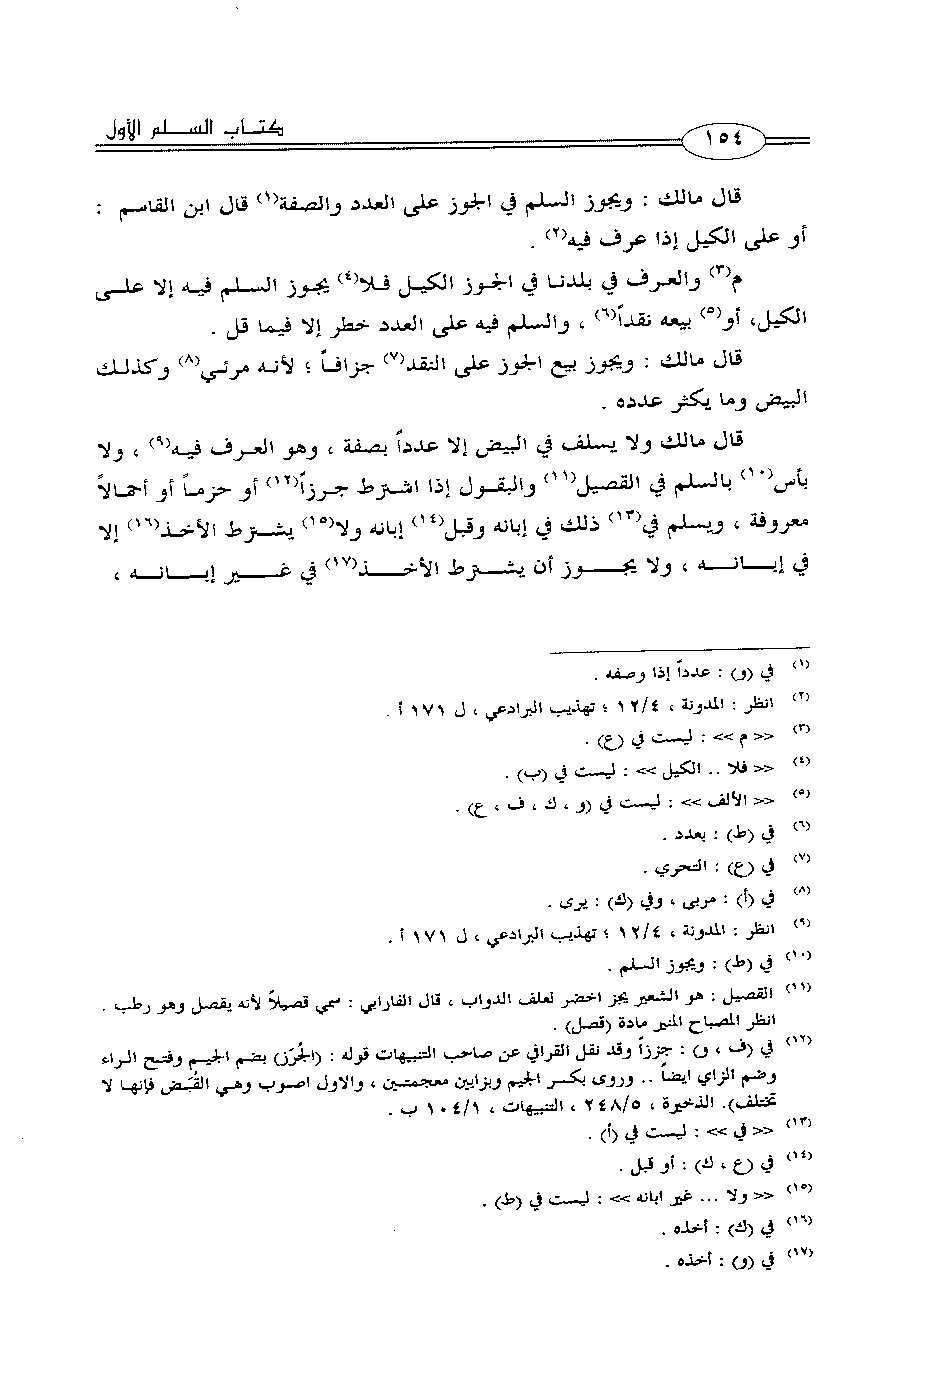 كتاب السلم الأول
١٥٤
قال مالك : ويجوز السلم في الجوز على العدد والصفة(١) قال ابن القاسم :
أو على الكيل إذا عرف فيه(٢) .
م(٣) والعرف في بلدنا في الجوز الكيل فلا(٤) يجوز السلم فيه إلا على
الكيل، أو(٥) بيعه نقداً(٦) ، والسلم فيه على العدد خطر إلا فيما قل .
قال مالك : ويجوز بيع الجوز على النقد(٧) جزافاً ؛ لأنه مرئي(٨) وكذلك
البيض وما يكثر عدده .
قال مالك ولا يسلف في البيض إلا عدداً بصفة ، وهو العرف فيه(٩) ، ولا
بأس(١٠) بالسلم في القصيل(١١) والبقول إذا اشترط جرزاً(١٢) أو حزماً أو أحمالاً
معروفة ، ويسلم في(١٣) ذلك في إبانه وقبل(١٤) إبانه ولا(١٥) يشترط الأخذ(١٦) إلا
في إبانه ، ولا يجوز أن يشترط الأخذ(١٧) في غير إبانه ،
(١) في (و) : عدداً إذا وصفه .
(٢) انظر : المدونة ، ١٢/٤ ؛ تهذيب البرادعي ، ل ١٧١ أ .
(٣) << م >> : ليست في (ع) .
(٤) << فلا .. الكيل >> : ليست في (ب) .
(٥) << الألف >> : ليست في (و ، ك ، ف ، ع) .
(٦) في (ط) : بعدد .
(٧) في (ع) : التحري .
(٨) في (أ) : مربى ، وفي (ك) : يرى .
(٩) انظر : المدونة ، ١٢/٤ ؛ تهذيب البرادعي ، ل ١٧١ أ .
(١٠) في (ط) : ويجوز السلم .
(١١) القصيل : هو الشعير يجز اخضر لعلف الدواب ، قال الفارابي : سمي قصيلاً لأنه يقصل وهو رطب .
انظر المصباح المنير مادة (قصل) .
(١٢) في (ف ، و) : جززاً وقد نقل القرافي عن صاحب التنبيهات قوله : (الجُرَز) بضم الجيم وفتح الراء
وضم الزاي ايضاً .. وروى بكسر الجيم وبزايين معجمتين ، والاول اصوب وهي القُبَض فإنها لا
تختلف). الذخيرة ، ٢٤٨/٥ ، التنبيهات ، ١٠٤/١ ب .
(١٣) << في >> : ليست في (أ) .
(١٤) في (ع ، ك) : أو قبل .
(١٥) << ولا ... غير ابانه >> : ليست في (ط) .
(١٦) في (ك) : أخذه .
(١٧) في (و) : أخذه .